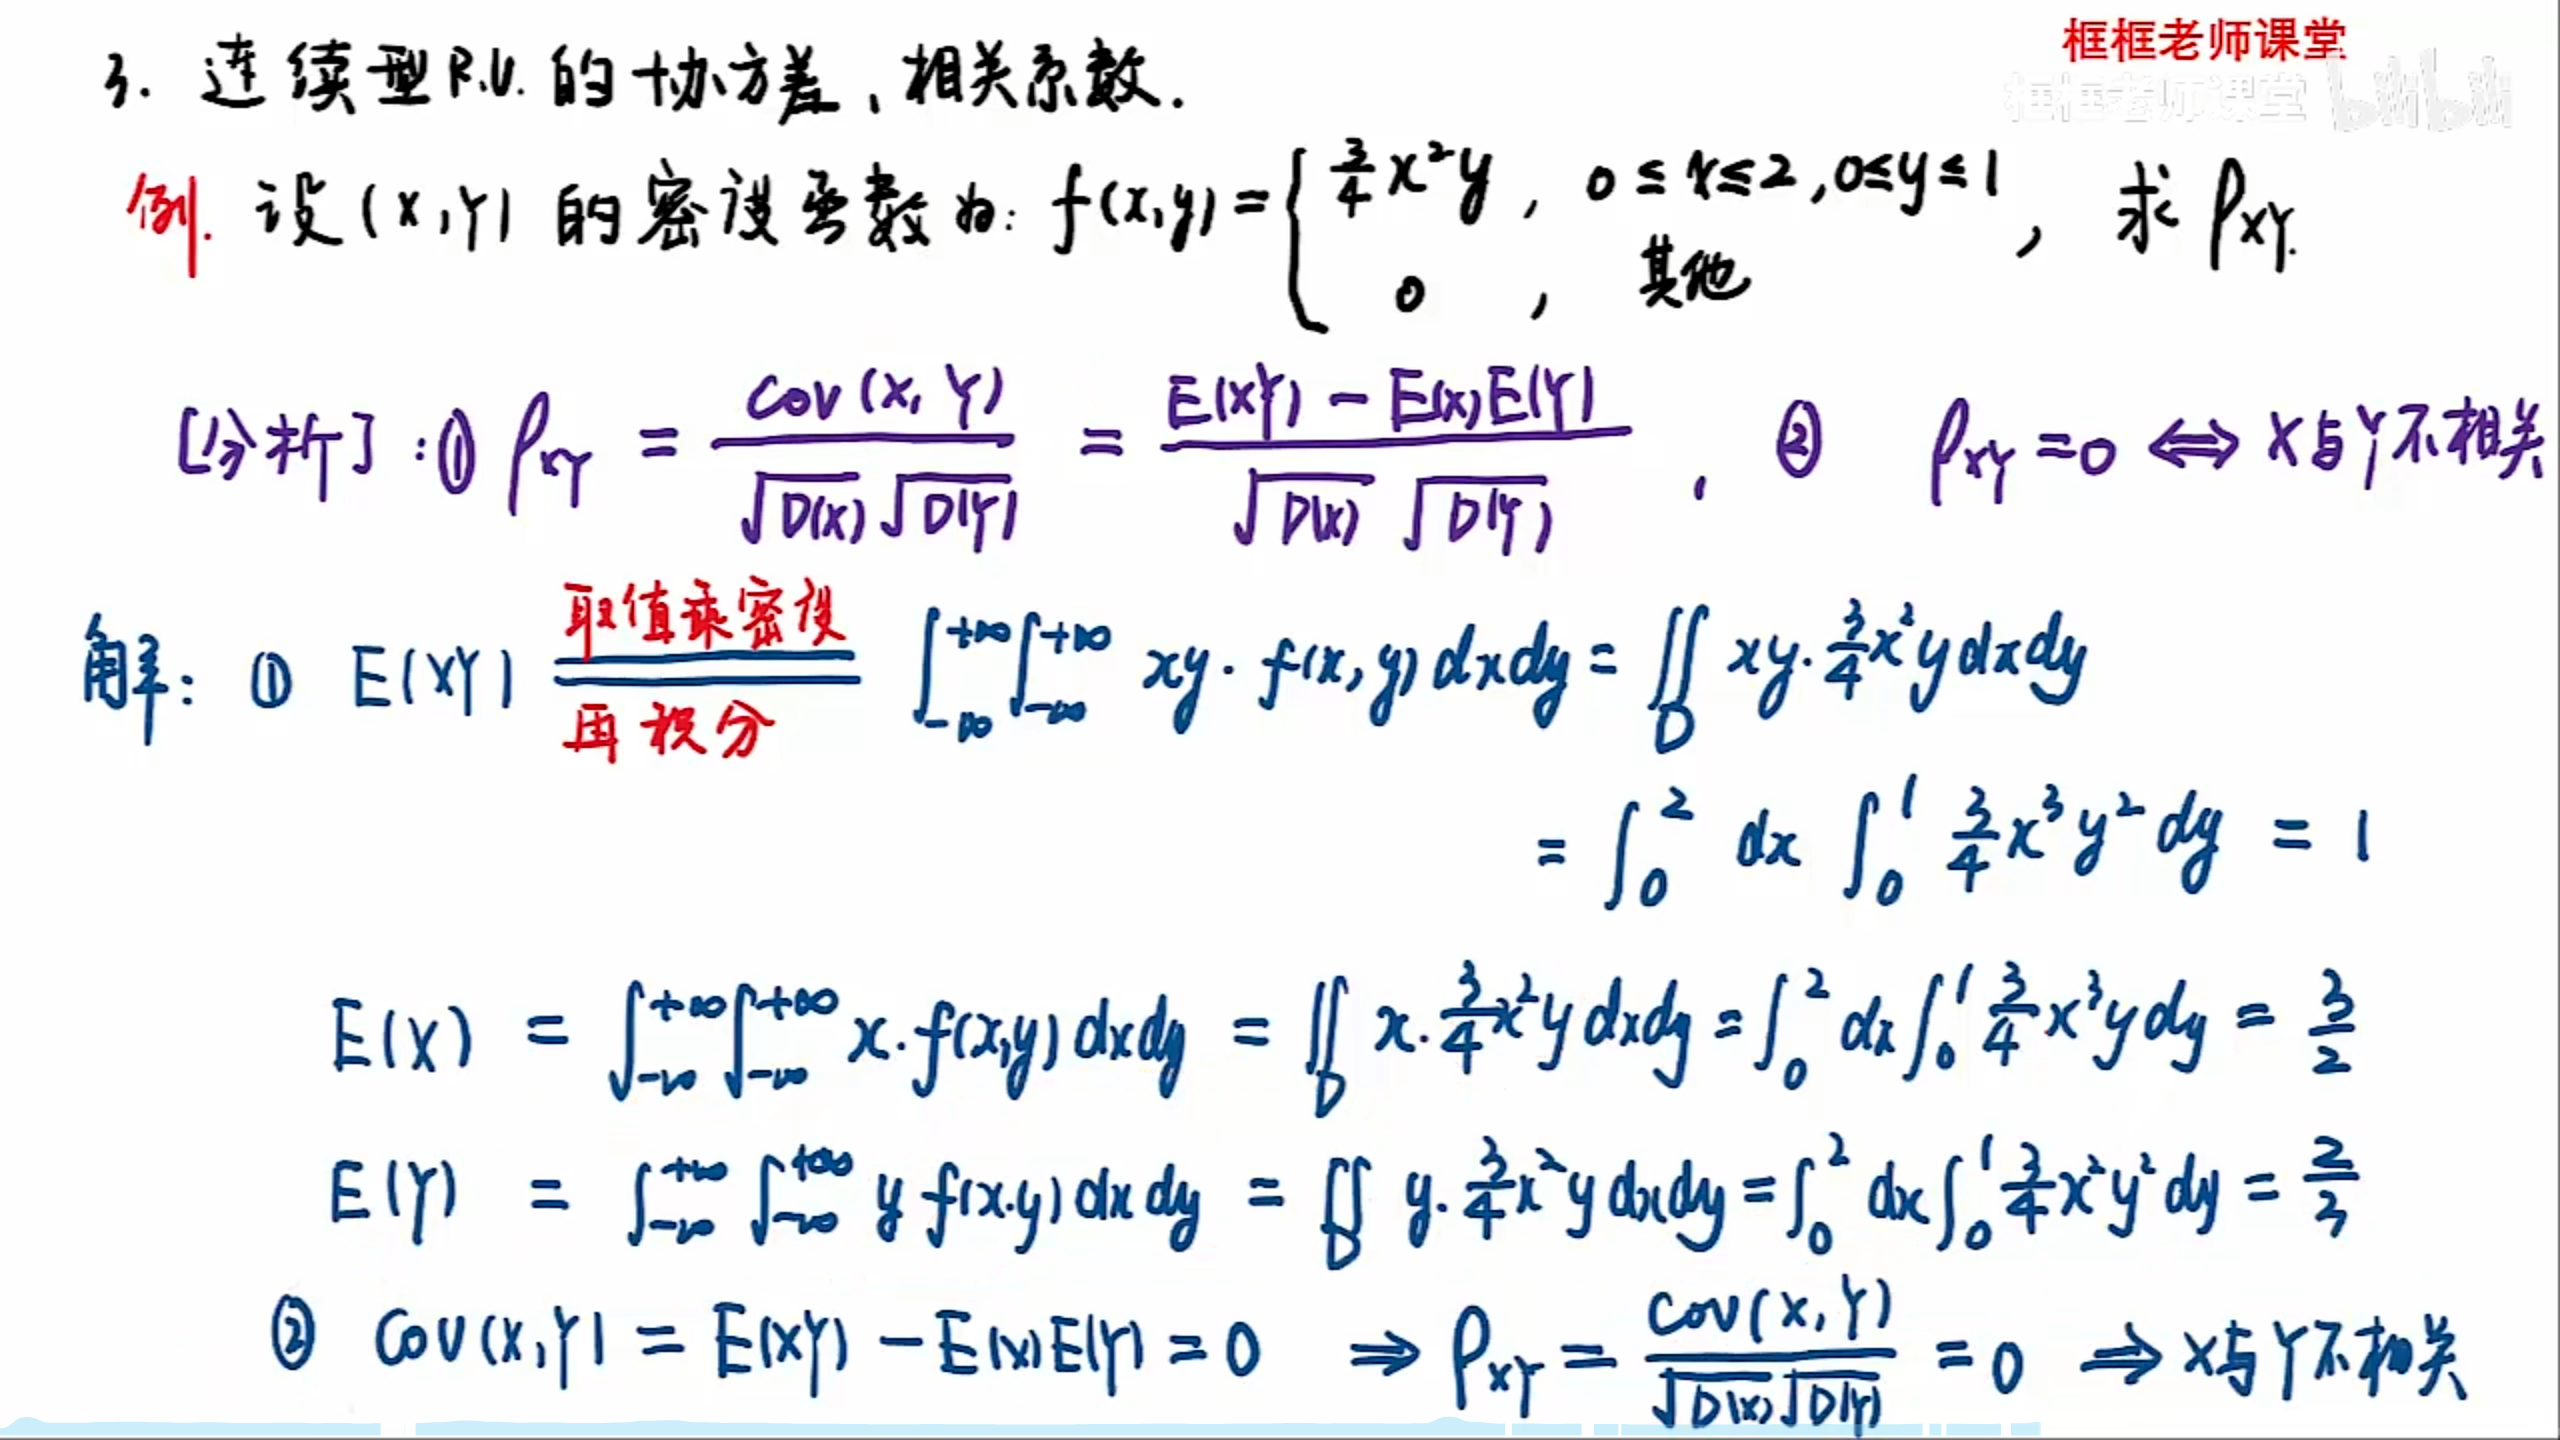 框框老师课堂
框框老师课堂 bilibili
3. 连续型R.V.的协方差、相关系数.
例. 设(X,Y)的密度函数为: f(x,y)={ 3/4 x²y, 0≤x≤2,0≤y≤1, 求ρXY.
0, 其他
[分析]:① ρXY = Cov(X,Y)/√D(X)√D(Y) = E(XY)-E(X)E(Y)/√D(X)√D(Y), ② ρXY=0 ⇔ X与Y不相关
取值乘密度
解: ① E(XY) = ∫_{-∞}^{+∞}∫_{-∞}^{+∞} xy·f(x,y)dxdy = ∬_D xy·3/4 x²ydxdy
再积分
= ∫_0^2 dx ∫_0^1 3/4 x³y²dy = 1
E(X) = ∫_{-∞}^{+∞}∫_{-∞}^{+∞} x·f(x,y)dxdy = ∬_D x·3/4 x²ydxdy = ∫_0^2 dx∫_0^1 3/4 x³ydy = 3/2
E(Y) = ∫_{-∞}^{+∞}∫_{-∞}^{+∞} y f(x.y)dxdy = ∬_D y·3/4 x²ydxdy = ∫_0^2 dx∫_0^1 3/4 x²y²dy = 2/3
② Cov(X,Y) = E(XY)-E(X)E(Y) = 0 ⇒ ρXY = Cov(X,Y)/√D(X)√D(Y) = 0 ⇒ X与Y不相关